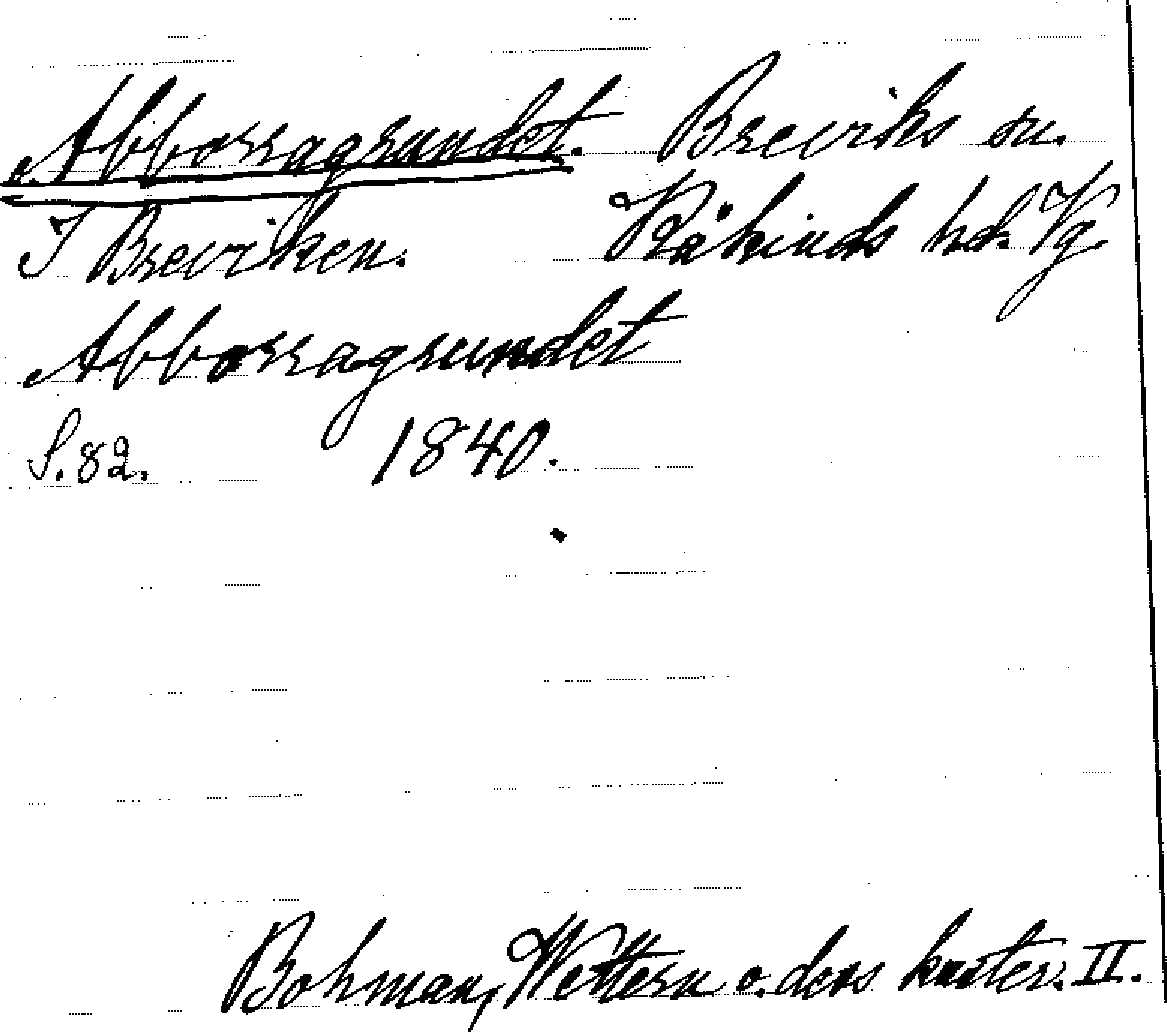 Abborragrundet. Breviks sn.
I Breviken. Kåkinds hd. Vg.
Abborragrundet
S. 82. 1840.
Bohman, Wettern o. dess kuster. II.